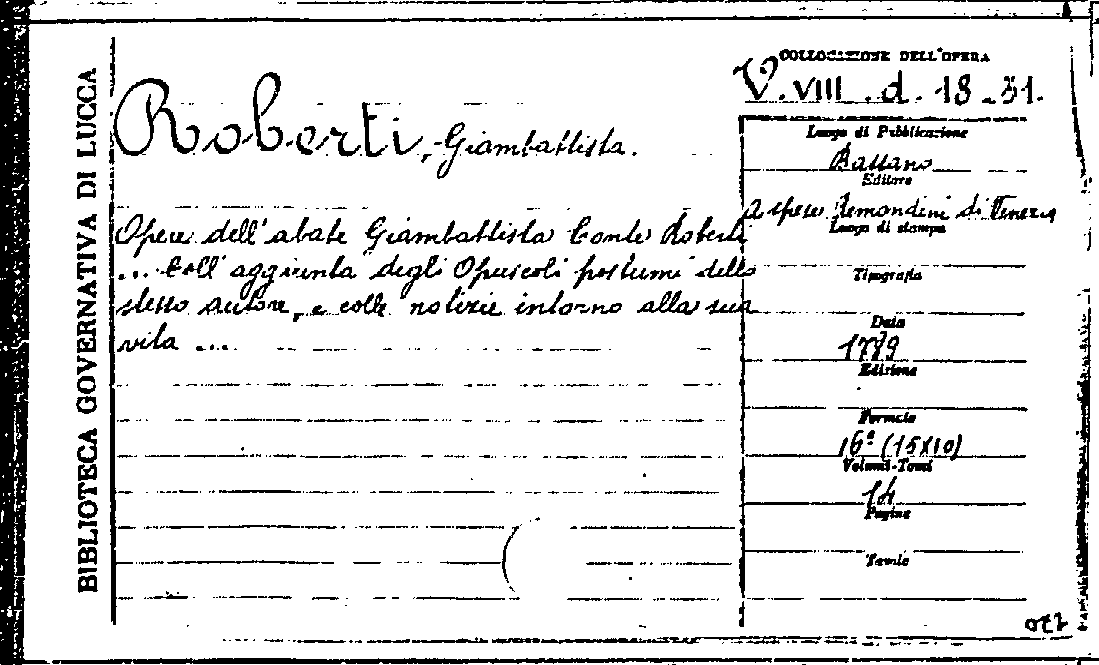 BIBLIOTECA GOVERNATIVA DI LUCCA
Roberti, Giambattista.
Opere dell'abate Giambattista Conte Roberti
... Coll'aggiunta degli Opuscoli postumi dello
stesso autore, e colle notizie intorno alla sua
vita ...
COLLOCAZIONE DELL'OPERA
V. VIII. d. 18-31.
Luogo di Pubblicazione
Bassano
Editore
A spese Remondini di Venezia
Luogo di stampa
Tipografia
Data
1789
Edizione
Formato
16º (15X10)
Volumi-Tomi
14
Pagine
Tavole